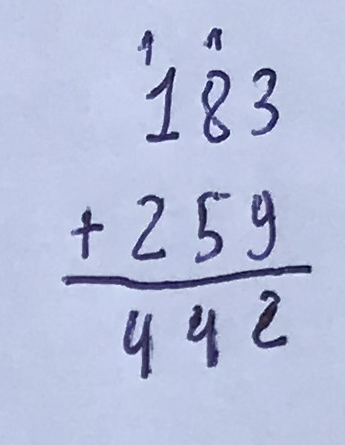 1 1
183
+ 259
442